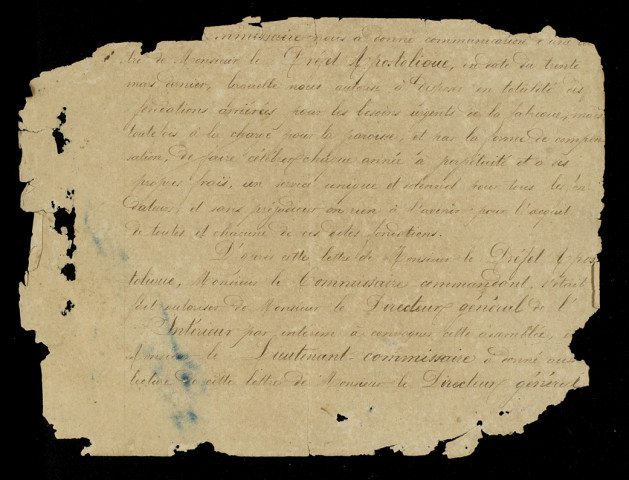 nous a donné communication d'une
tre de Monsieur le Préfet Apostolique, en date du trente
mars dernier, laquelle nous autorise à disposer en totalité des
fondations arriérées pour les besoins urgents de la fabrique, mais
toutefois à la charge pour la paroisse, et par la forme de compen
sation, de faire célébrer chaque année à perpétuité et à ses
propres frais, un service unique et solennel pour tous les fon
dateurs, et sans préjudicier en rien à l'avenir pour l'acquit
de toutes et chacune de ces dites fondations.
D'après cette lettre de Monsieur le Préfet Apos
tolique, Monsieur le Commissaire commandant, s'étant
fait autoriser de Monsieur le Directeur général de l'
Intérieur par intérim à convoquer cette assemblée,
Monsieur le Lieutenant-commissaire a donné aussi
lecture de cette lettre de Monsieur le Directeur général